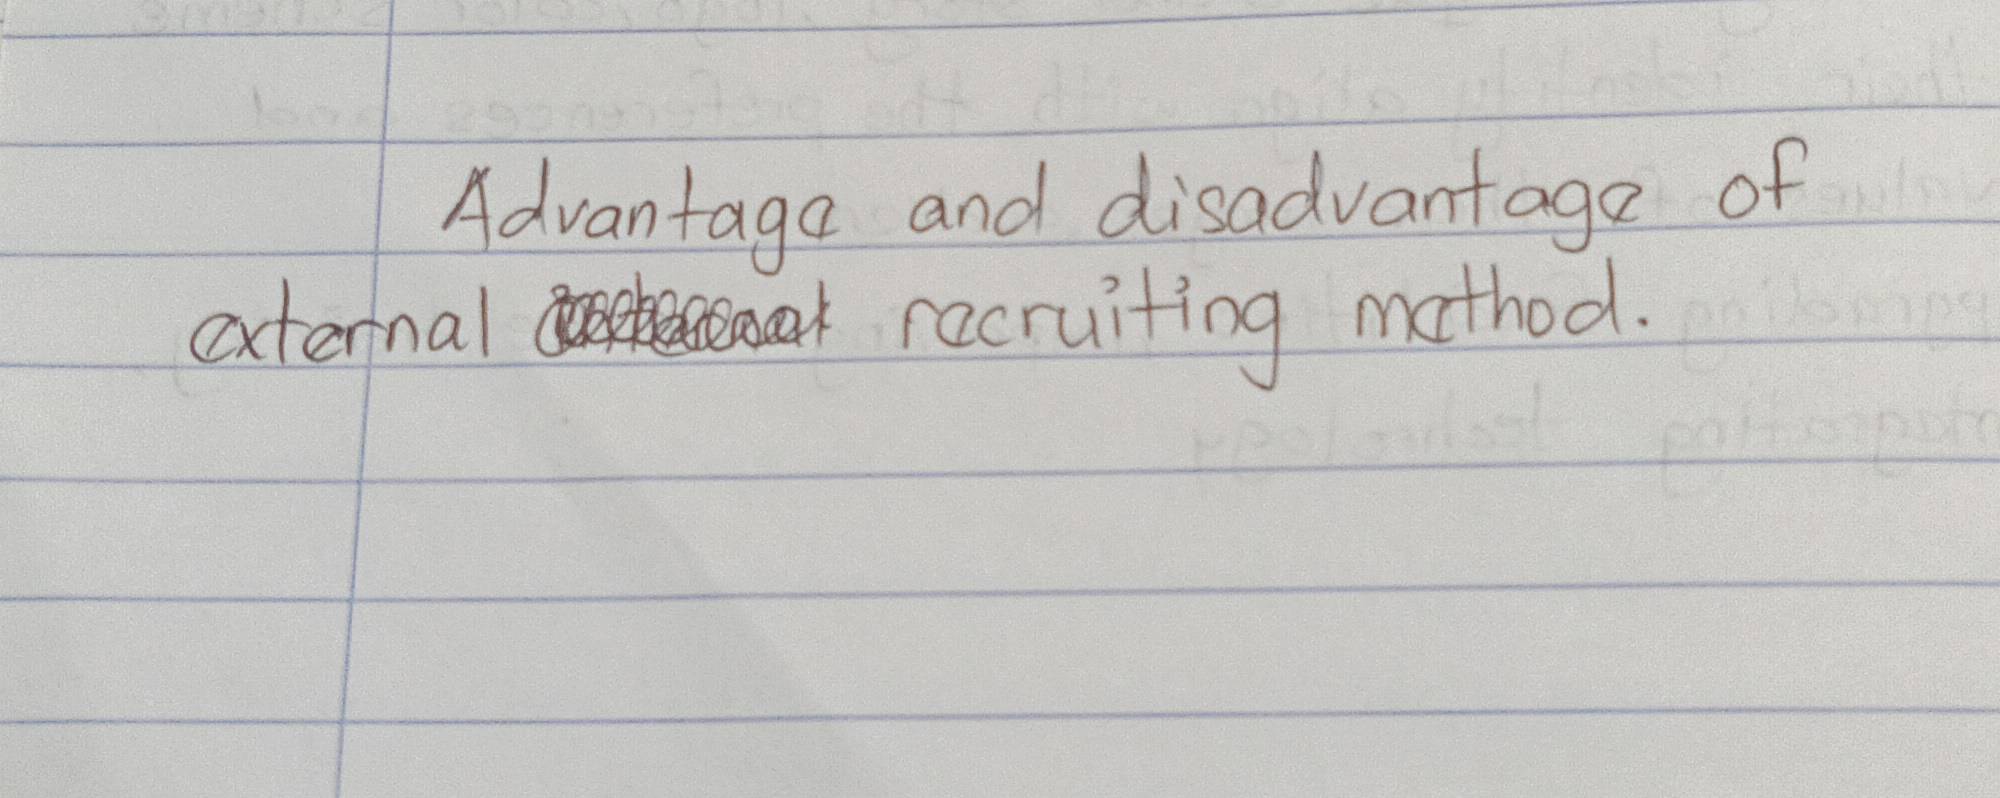 Advantage and disadvantage of
external recruiting method.